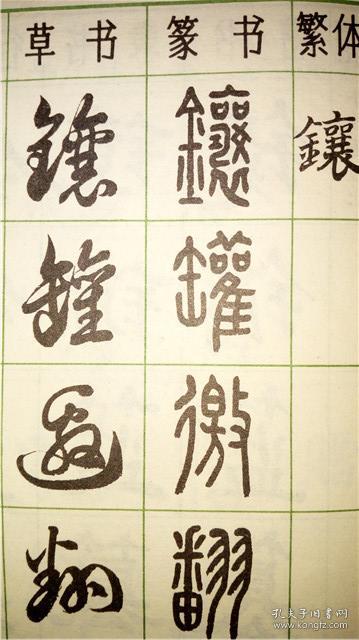 草书 篆书 繁体
鑲 鑲 鑲
罐 罐
邀 徼
翻 翻
孔夫子旧书网
www.kongfz.com